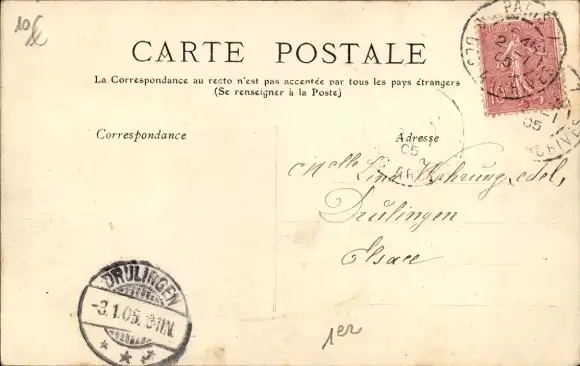 10 €
CARTE POSTALE
La Correspondance au recto n'est pas acceptée par tous les pays étrangers
(Se renseigner à la Poste)
Correspondance
Adresse
PARIS
05
05
10
Melle Lina
Drulingen
Elsace
DRULINGEN
-3.1.05. 8-11N.
1er